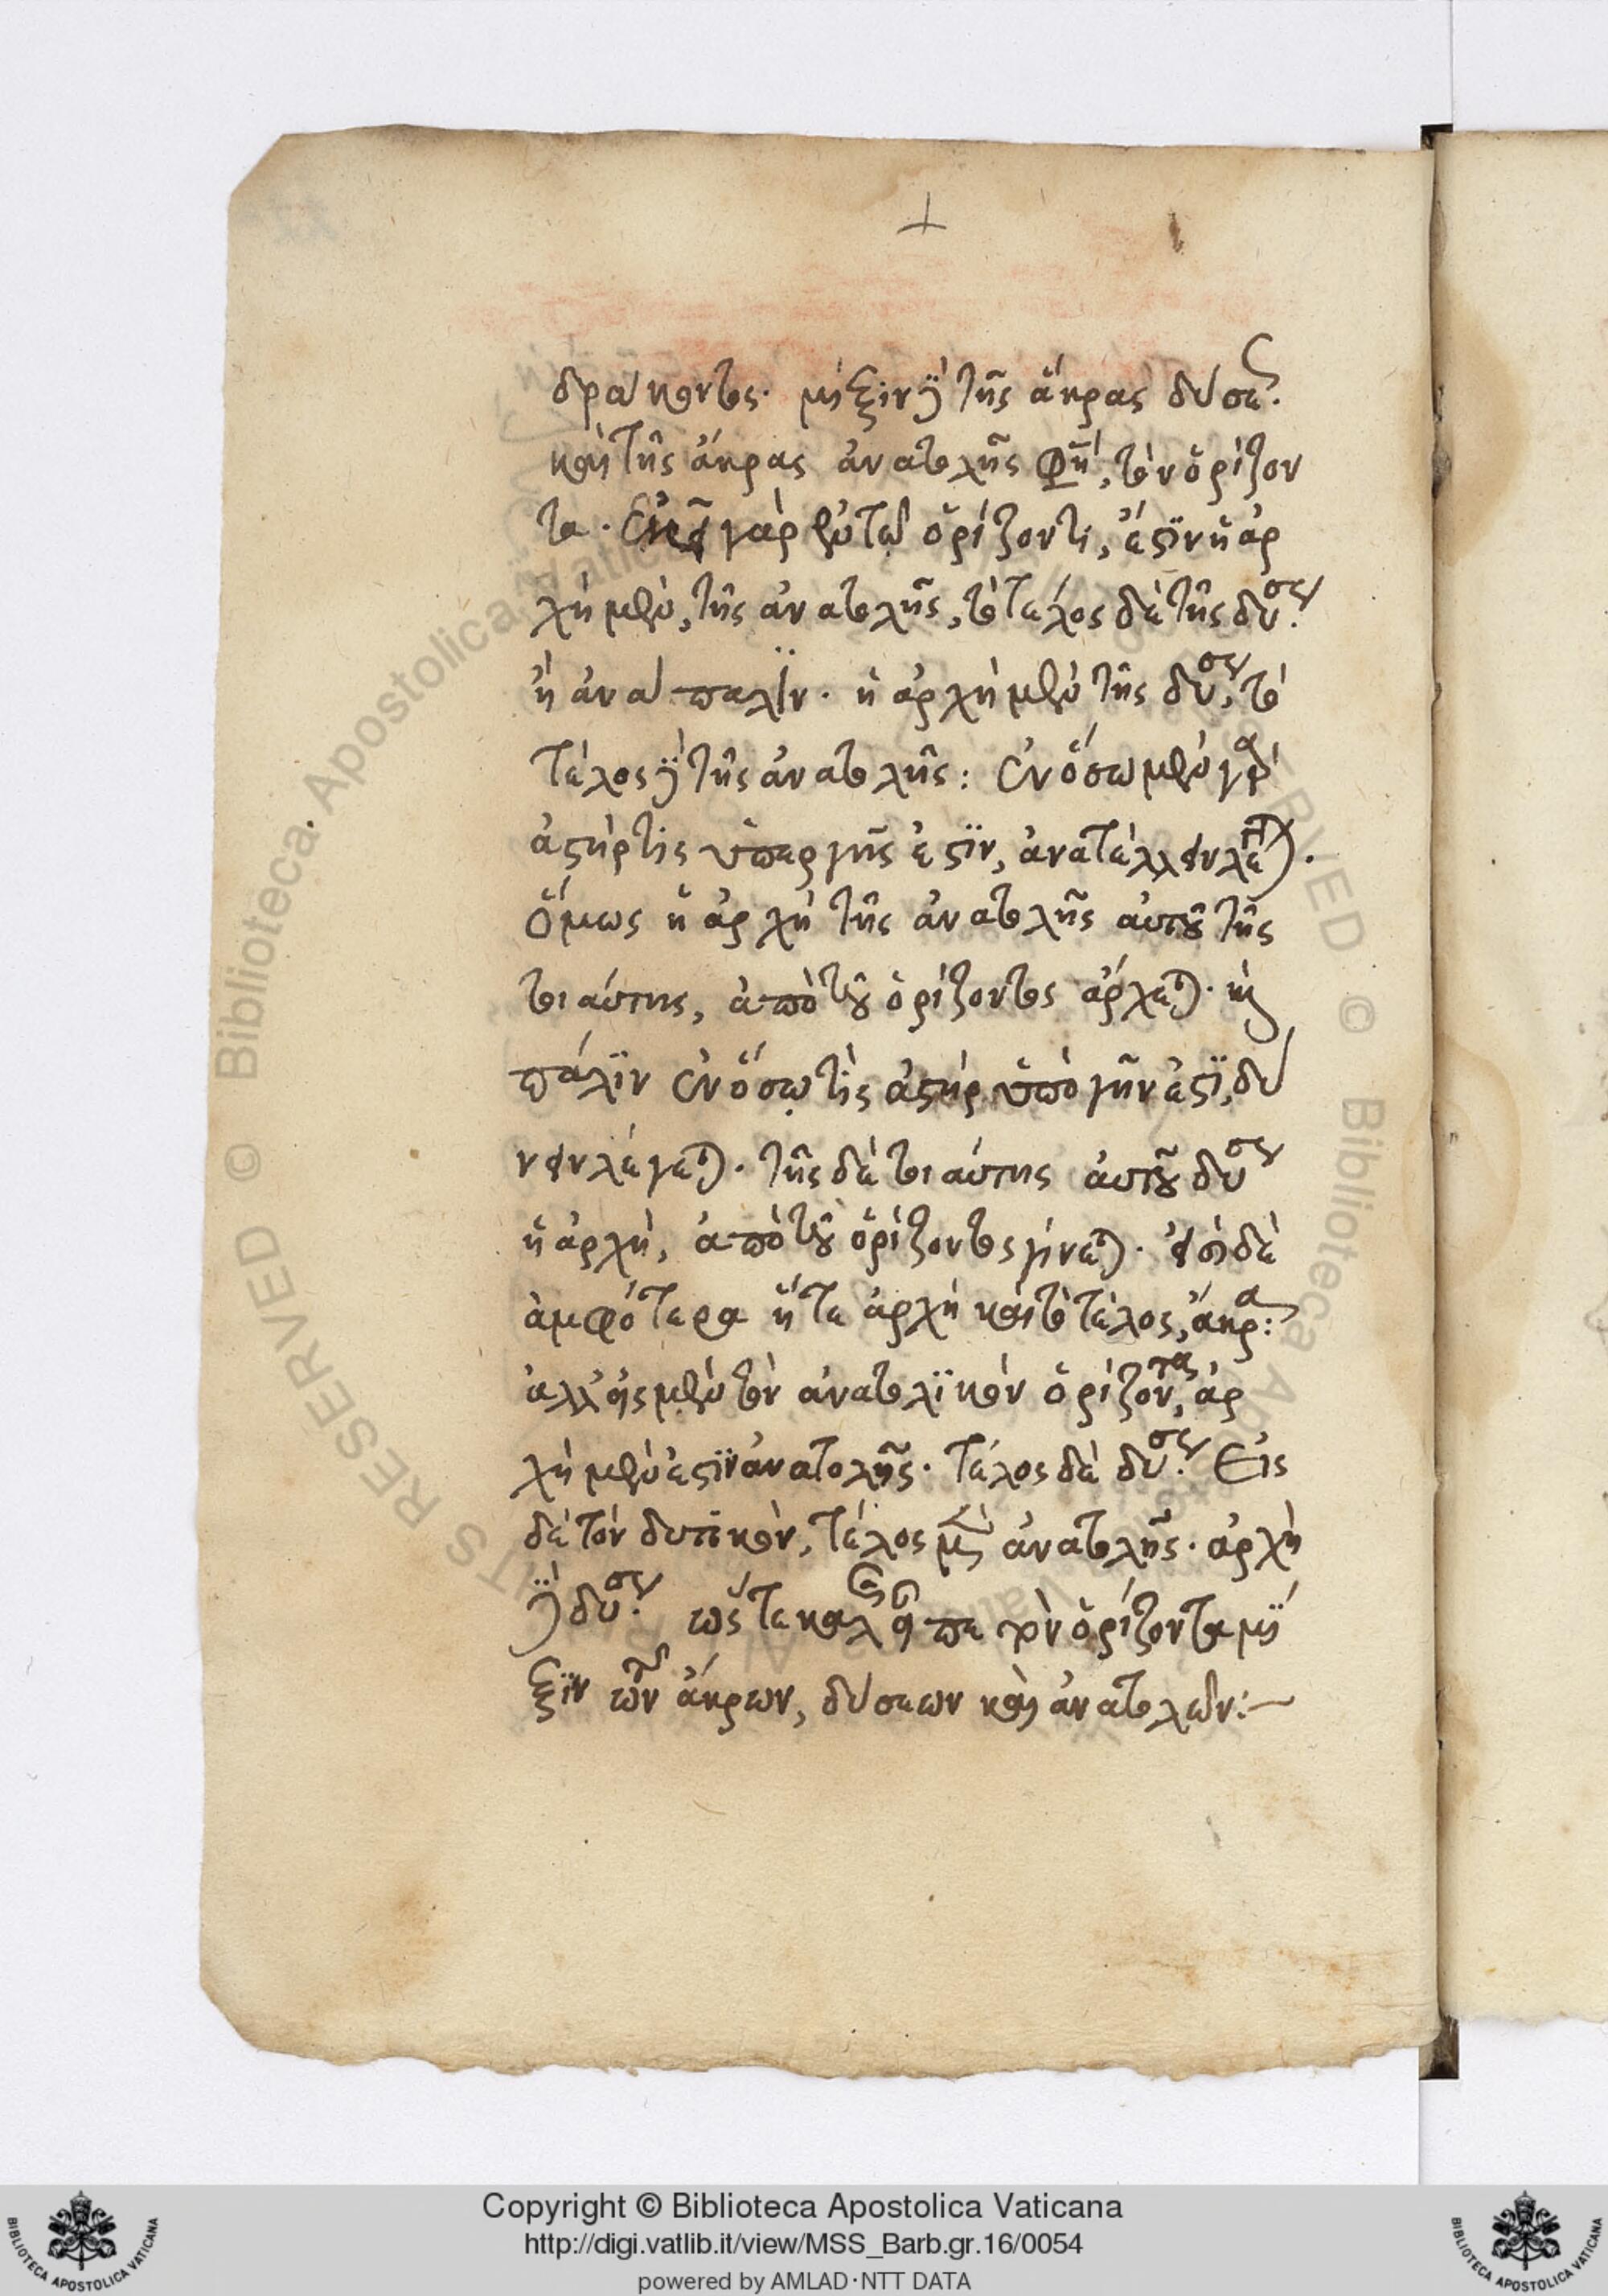 δράκοντος. μίξιν δὲ τῆς ἄκρας δύσεως
καὶ τῆς ἄκρας ἀνατολῆς φησὶ, τὸν ὁρίζον
τα. Ἐκεῖ γὰρ ἐν τῶ ὁρίζοντι, ἐστὶν ἡ ἀρ
χὴ μὲν, τῆς ἀνατολῆς, τὸ τέλος δὲ τῆς δύσεως.
ἢ ἀνάπαλϊν. ἡ ἀρχὴ μὲν τῆς δύσεως, τὸ
τέλος δὲ τῆς ἀνατολῆς: Ἐν ὅσω μὲν γὰρ
ἀστήρ τις ὑπὲρ γῆς ἐστϊν, ἀνατέλλειν λέγεται.
ὅμως ἡ ἀρχὴ τῆς ἀνατολῆς αὐτοῦ τῆς
τοιαύτης, ἀπὸ τοῦ ὁρίζοντος ἄρχεται. καὶ
πάλϊν ἐν ὅσω τὶς ἀστὴρ ὑπὸ γῆν ἐστϊ, δύ
νειν λέγεται. τῆς δὲ τοιαύτης αὐτοῦ δύσεως
ἡ ἀρχὴ, ἀπὸ τοῦ ὁρίζοντος γίνεται. εἰσὶ δὲ
ἀμφότερα ἥ τε ἀρχὴ καὶ τὸ τέλος, ἄκρα:
ἀλλ' εἰς μὲν τὸν ἀνατολϊκὸν ὁρίζοντα, ἀρ
χὴ μὲν ἐστϊν ἀνατολῆς. τέλος δὲ δύσεως. Εἰς
δὲ τὸν δυτϊκὸν, τέλος μὲν ἀνατολῆς. ἀρχὴ
δὲ δύσεως. ὥστε καλῶς εἶπε τὸν ὁρίζοντα μΐ
ξϊν τῶν ἄκρων, δύσεων καὶ ἀνατολῶν:
Copyright © Biblioteca Apostolica Vaticana
http://digi.vatlib.it/view/MSS_Barb.gr.16/0054
powered by AMLAD·NTT DATA